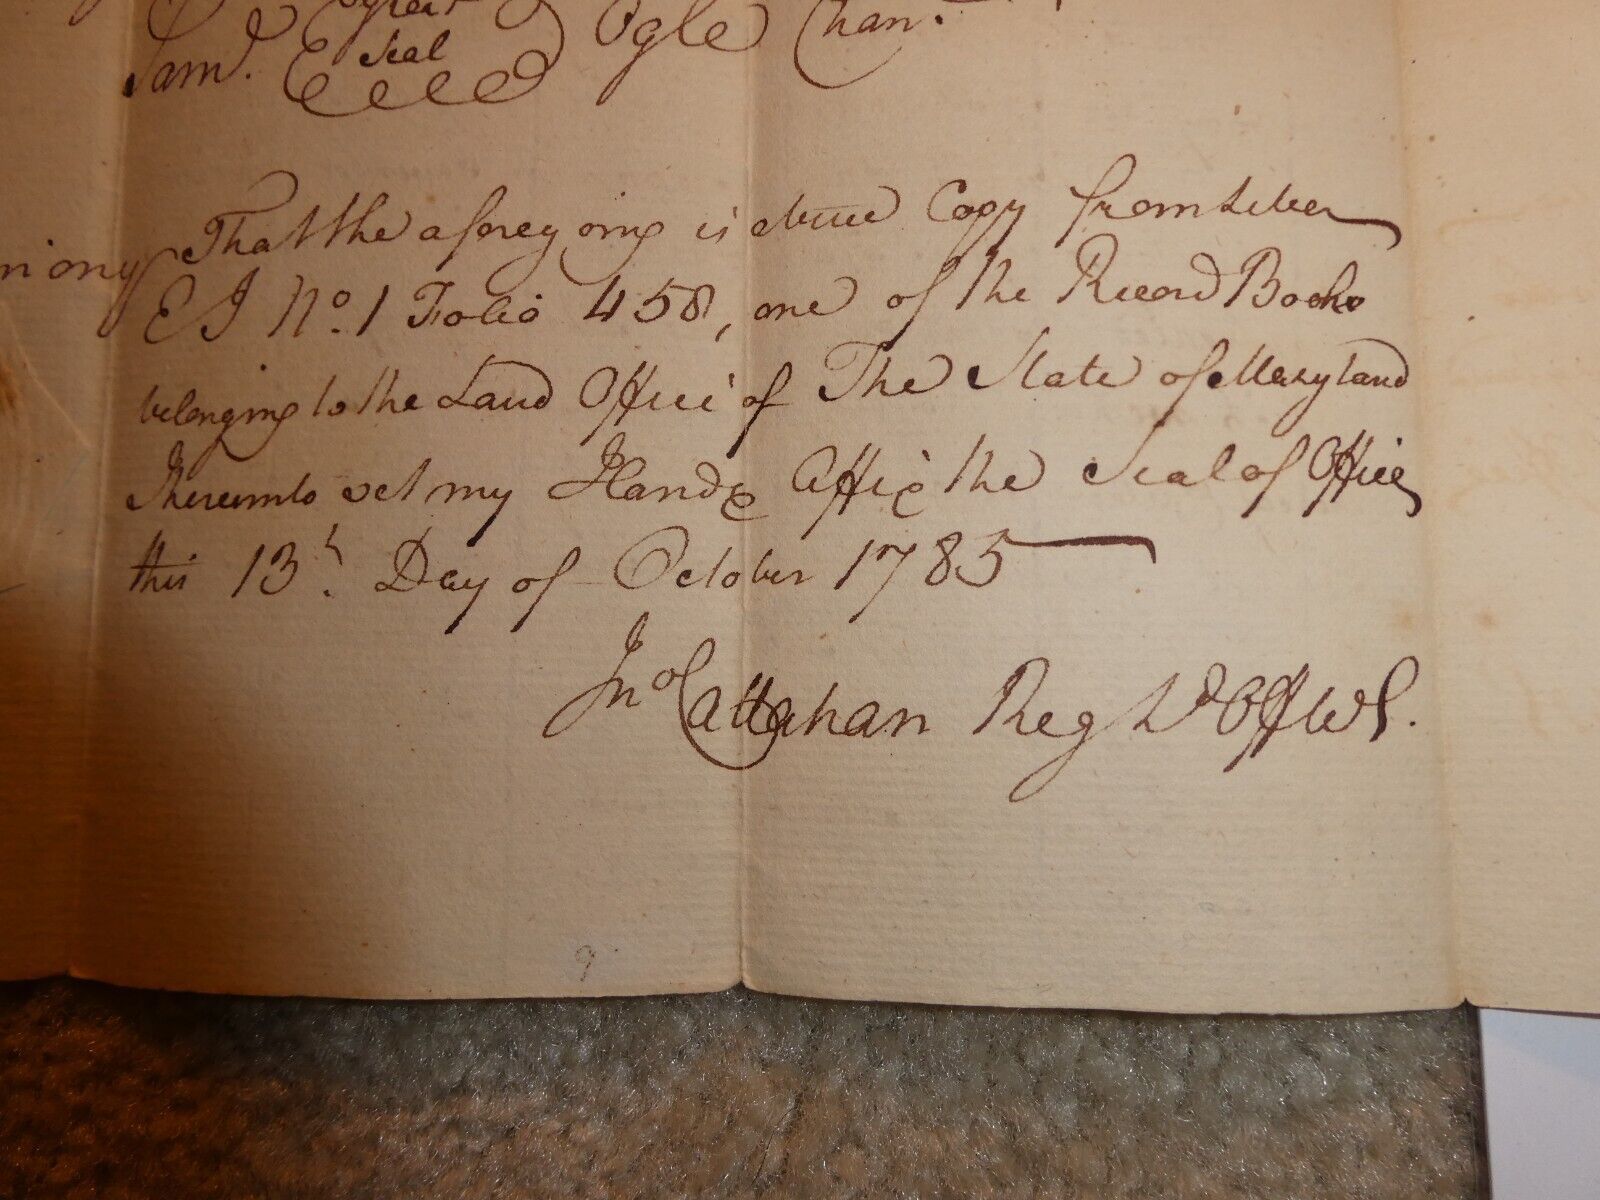 Great
Sam.l Seal Ogle Chan.r
That the aforegoing is a true Copy from Liber
mony
EI No. 1 Folio 458, one of the Record Books
belonging to the Land Office of The State of Maryland
Thereunto set my Hand & Affix the Seal of Office
this 13th Day of October 1785
Jno Callahan Reg Ld Off W S.
9